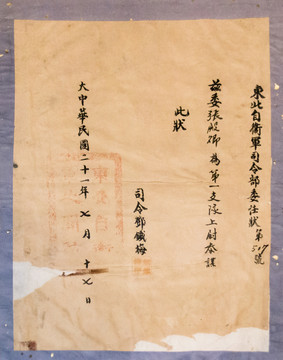 東北自衛軍司令部委任狀第517號
茲委張殿卿為第一支隊上尉參謀
此狀
司令鄧鐵梅
大中華民國二十一年七月十七日